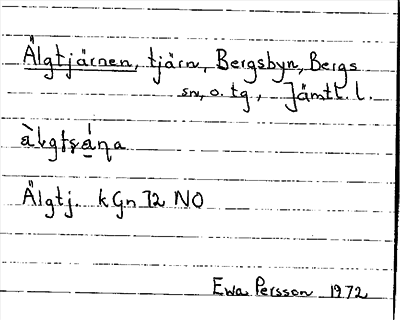 Älgtjärnen, tjärn, Bergsbyn, Bergs
sn, o. tg., Jämtl. l.
Älgtj. k Gn 72 NO
Ewa Persson 1972